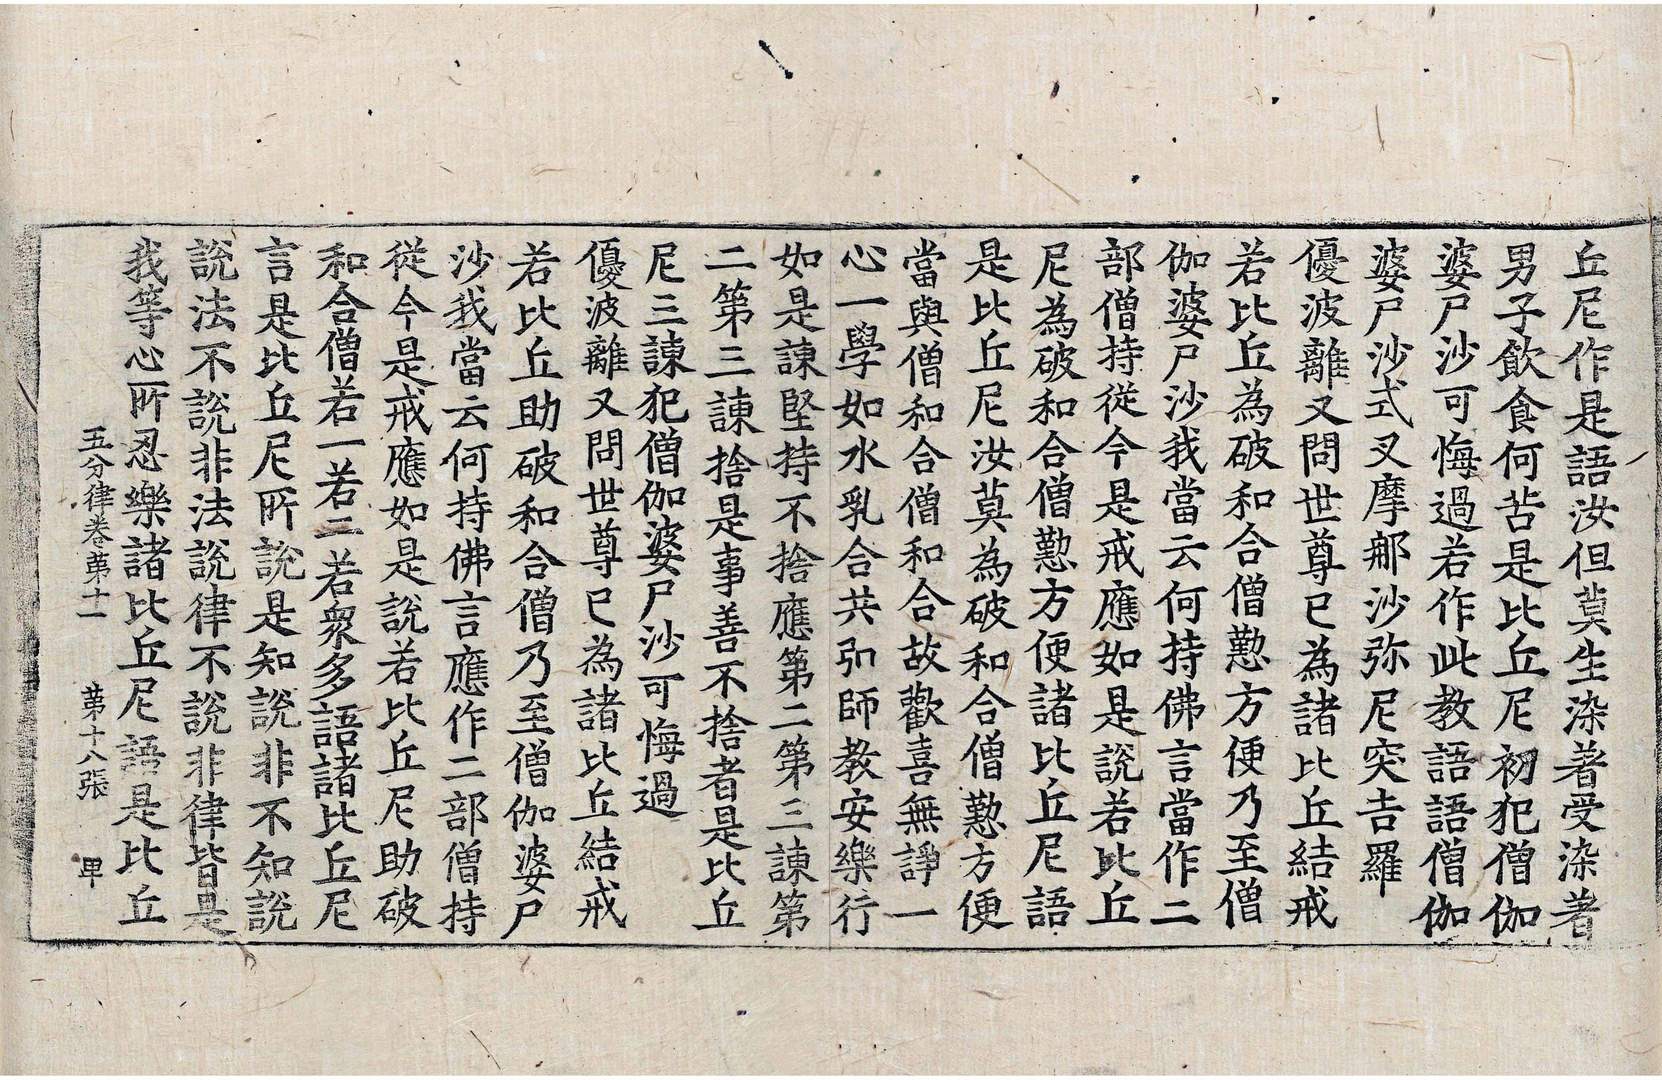 丘尼作是語汝但莫生染著受染著
男子飲食何苦是比丘尼初犯僧伽
婆尸沙可悔過若作此教語語僧伽
婆尸沙式叉摩那沙弥尼突吉羅
優波離又問世尊已為諸比丘結戒
若比丘為破和合僧懃方便乃至僧
伽婆尸沙我當云何持佛言當作二
部僧持從今是戒應如是說若比丘
尼為破和合僧懃方便諸比丘尼語
是比丘尼汝莫為破和合僧懃方便
當與僧和合僧和合故歡喜無諍一
心一學如水乳合共弘師教安樂行
如是諫堅持不捨應第二第三諫第
二第三諫捨是事善不捨者是比丘
尼三諫犯僧伽婆尸沙可悔過
優波離又問世尊已為諸比丘結戒
若比丘助破和合僧乃至僧伽婆尸
沙我當云何持佛言應作二部僧持
從今是戒應如是說若比丘尼助破
和合僧若一若二若衆多語諸比丘尼
言是比丘尼所說是知說非不知說
說法不說非法說律不說非律皆是
我等心所忍樂諸比丘尼語是比丘
五分律卷第十一 第十八張 甲